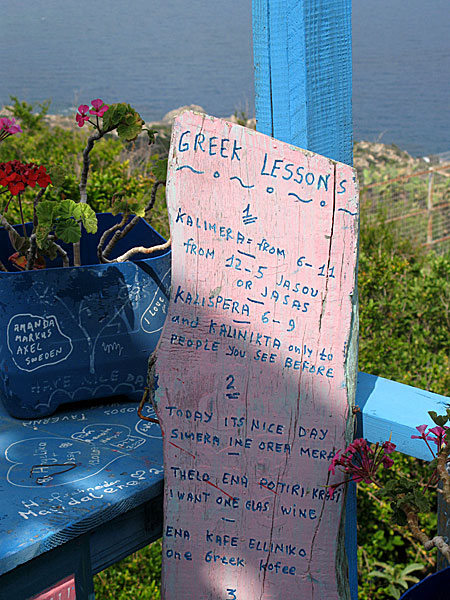 GREEK LESSONS
1
KALIMERA = from 6-11
from 12-5 JASOU
OR JASAS
KALISPERA 6-9
and KALINIKTA only to
PEOPLE YOU SEE BEFORE
2
TODAY ITS NICE DAY
SIMERA INE OREA MERA
THELO ENA POTIRI-KRASI
I WANT ONE GLAS WINE
ENA KAFE ELLINIKO
one Greek kofee
3
AMANDA
MARKUS
AXEL
SWEDEN
LOVE
NICE DA